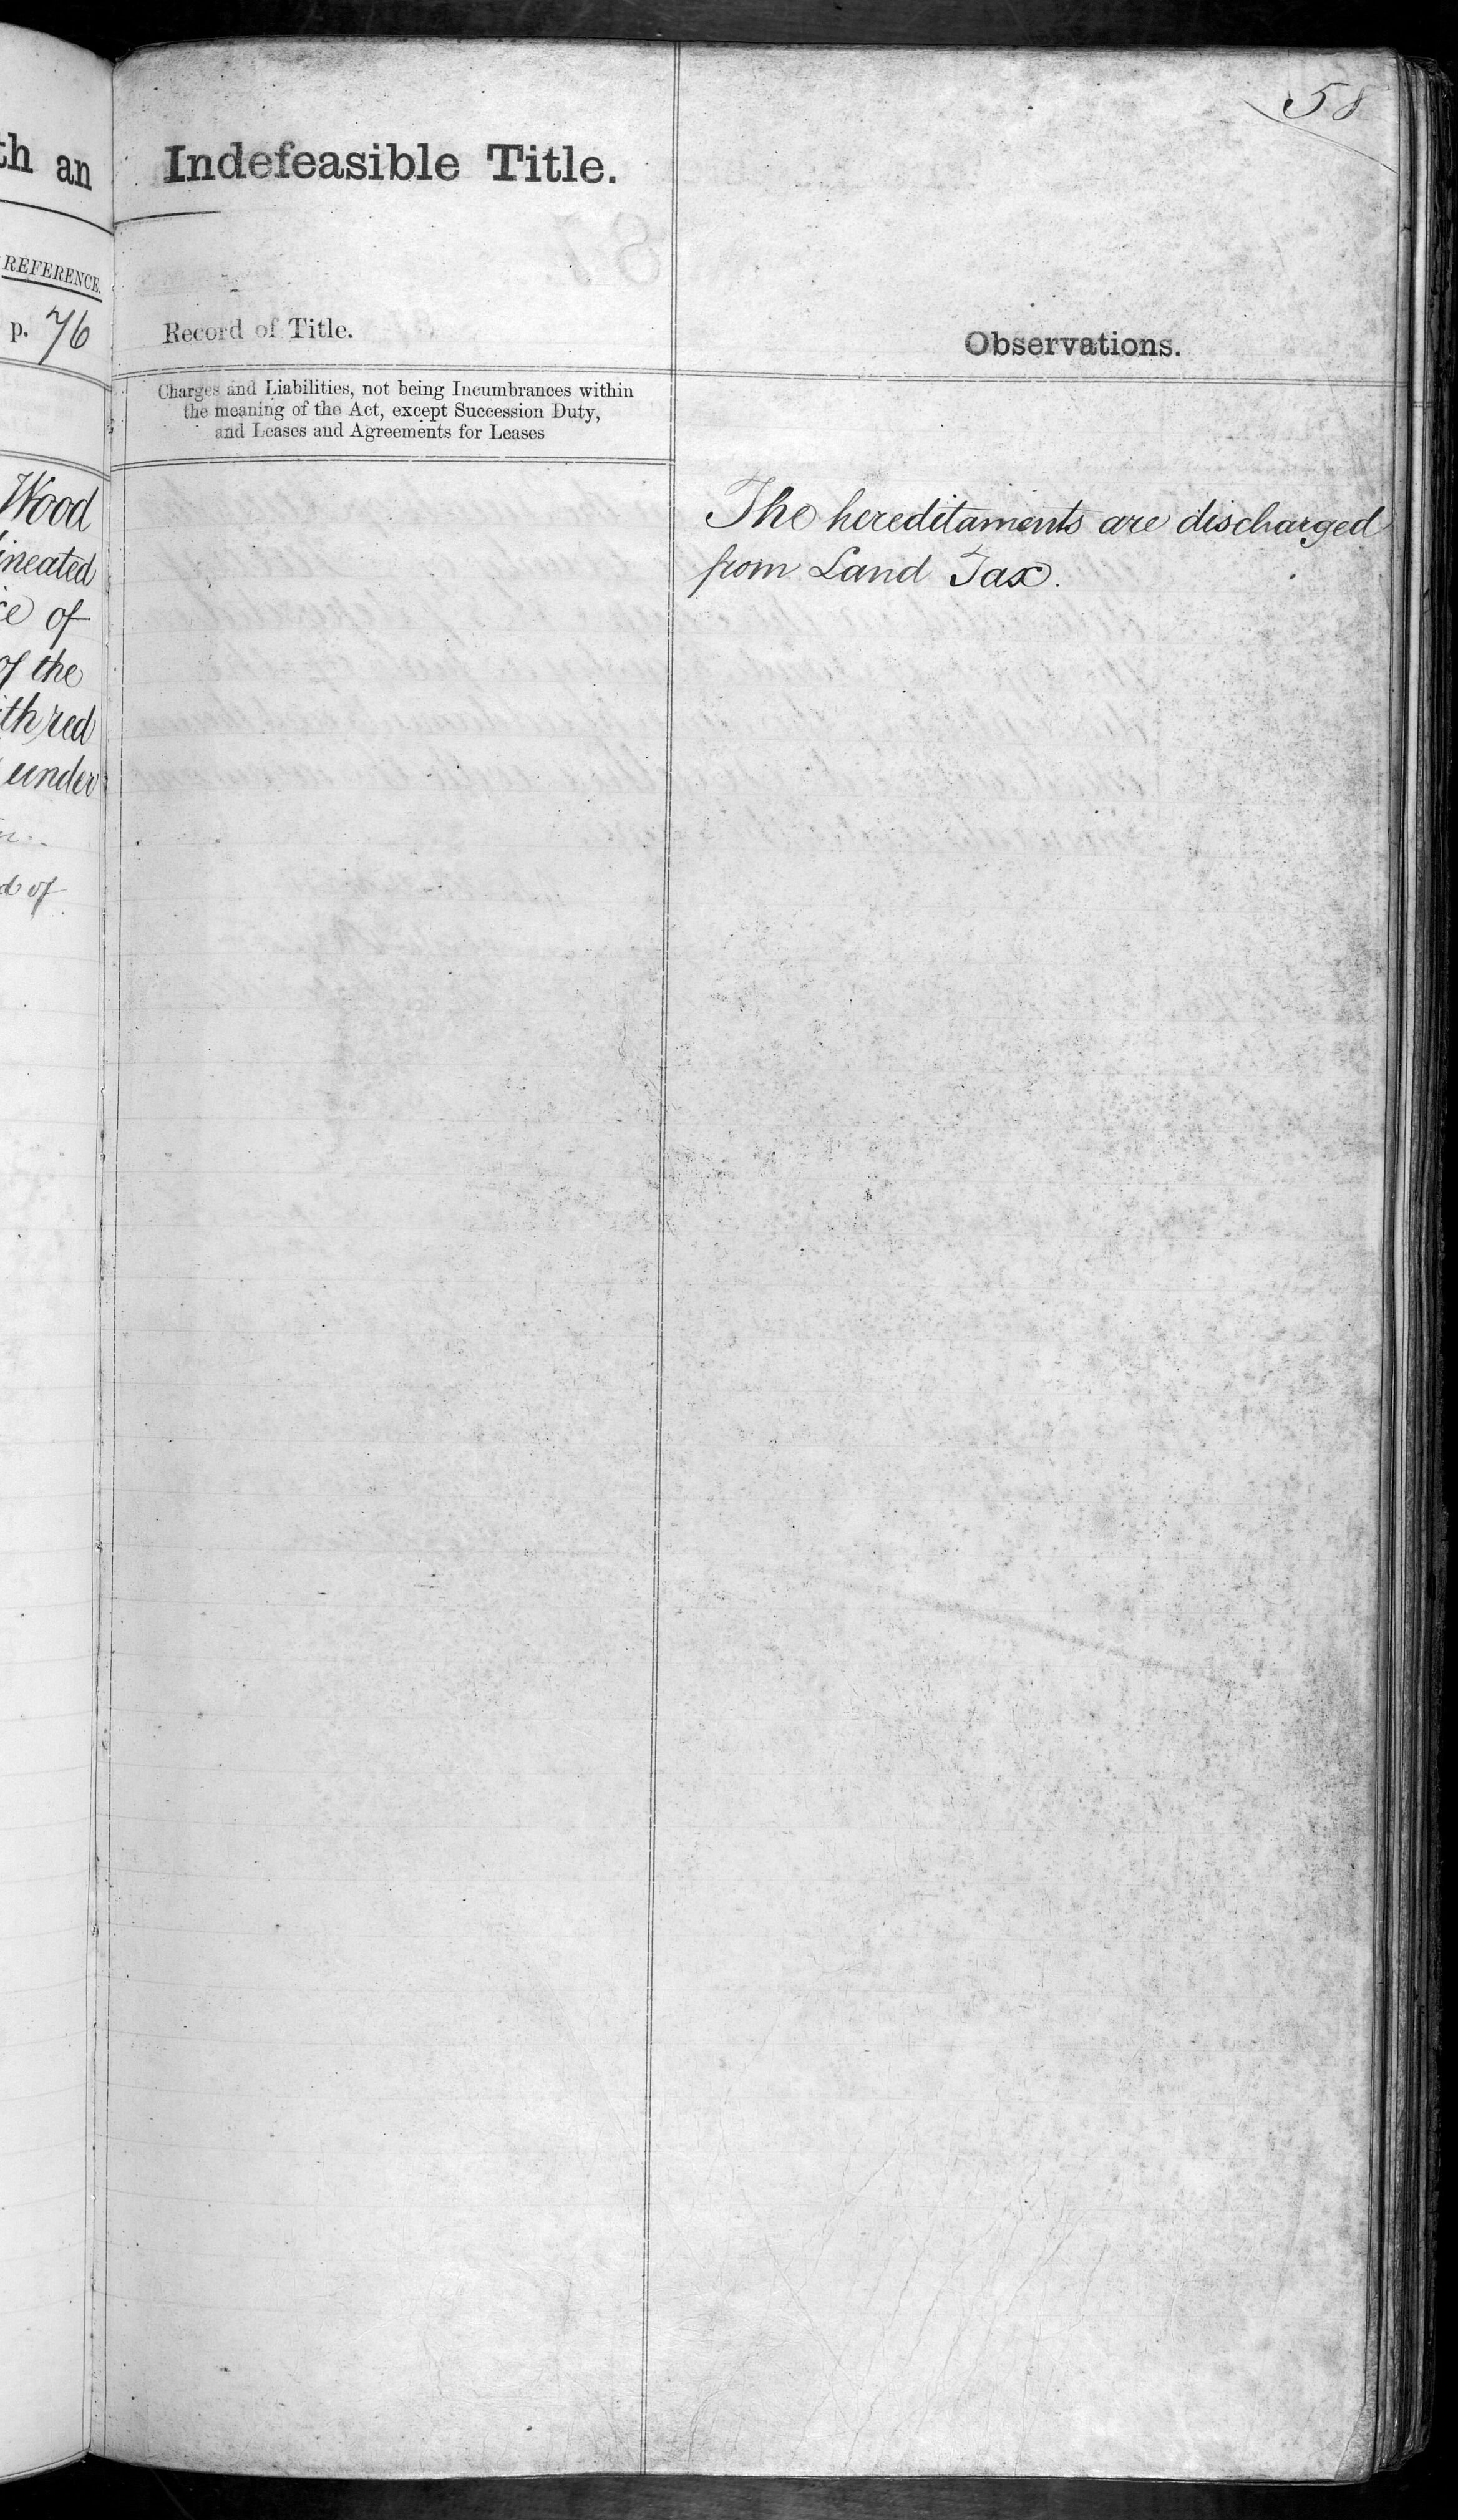 th an
REFERENCE.
p. 76
Wood
ineated
ce of
of the
ith red
under
d of
58
Indefeasible Title.
Record of Title.
Charges and Liabilities, not being Incumbrances within
the meaning of the Act, except Succession Duty,
and Leases and Agreements for Leases
Observations.
The hereditaments are discharged
from Land Tax.